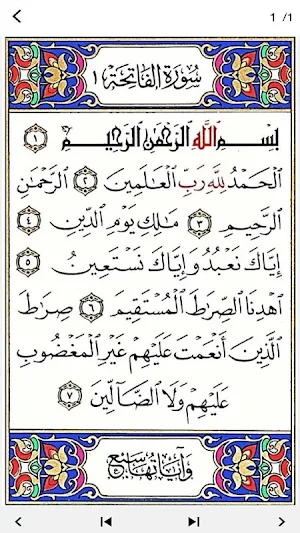 1 /1
سُورَةُ الفَاتِحَةِ ١
بِسْمِ اللَّهِ الرَّحْمَٰنِ الرَّحِيمِ ١
الْحَمْدُ لِلَّهِ رَبِّ الْعَالَمِينَ ٢ الرَّحْمَٰنِ
الرَّحِيمِ ٣ مَالِكِ يَوْمِ الدِّينِ ٤
إِيَّاكَ نَعْبُدُ وَإِيَّاكَ نَسْتَعِينُ ٥
اهْدِنَا الصِّرَاطَ الْمُسْتَقِيمَ ٦ صِرَاطَ
الَّذِينَ أَنْعَمْتَ عَلَيْهِمْ غَيْرِ الْمَغْضُوبِ
عَلَيْهِمْ وَلَا الضَّالِّينَ ٧
وَآيَاتُهَا سَبْعٌ